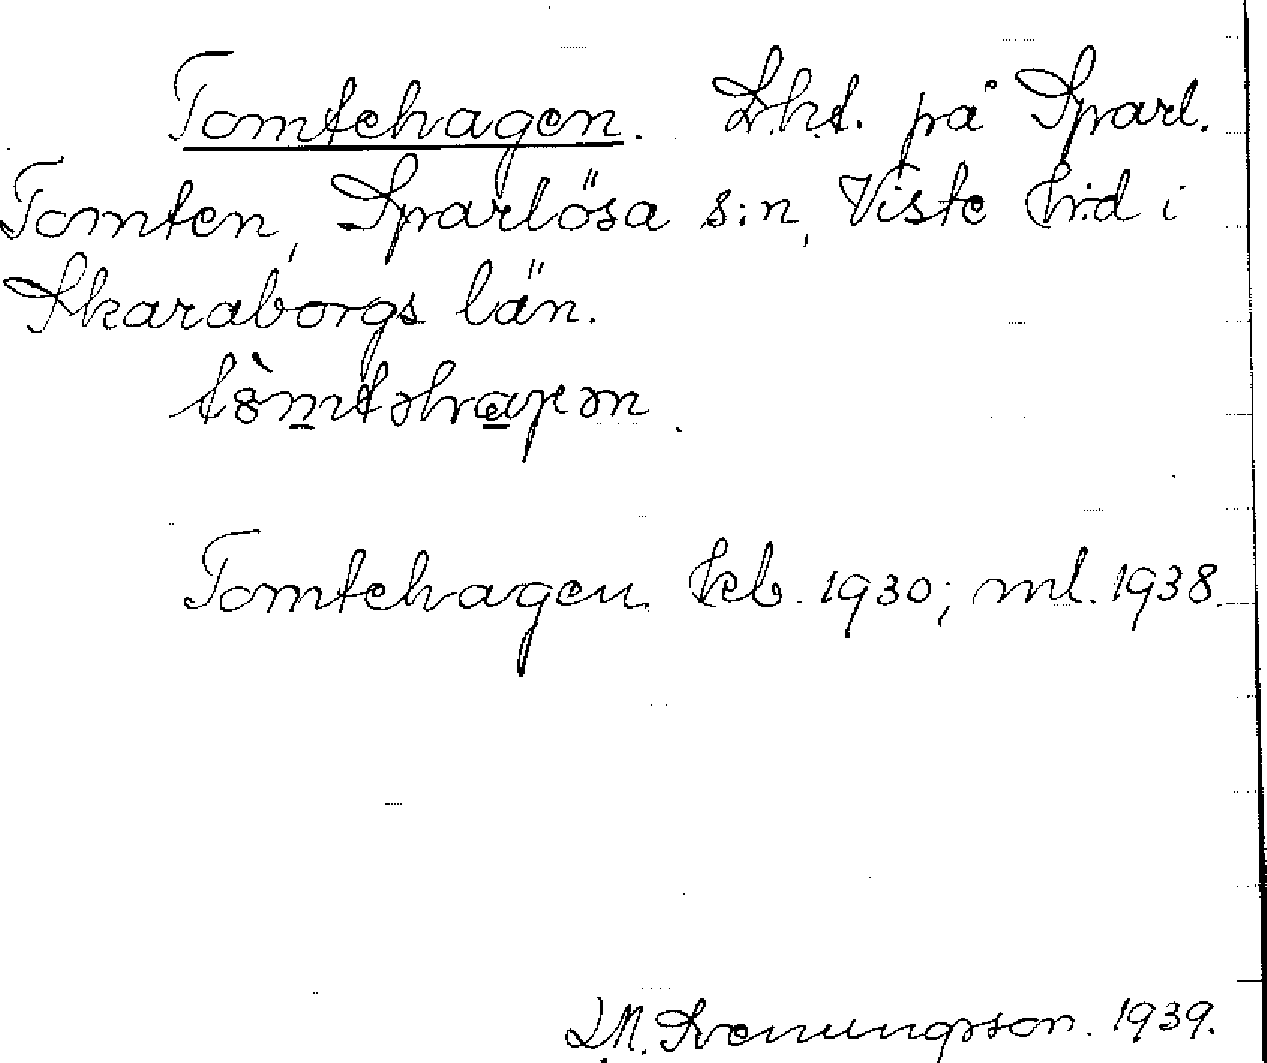 Tomtehagen. Lht. på Sparl.
Tomten, Sparlösa s:n, Viste hrd i
Skaraborgs län.
Tomtehagen kb. 1930; ml. 1938.
S.M. Svenungsson. 1939.